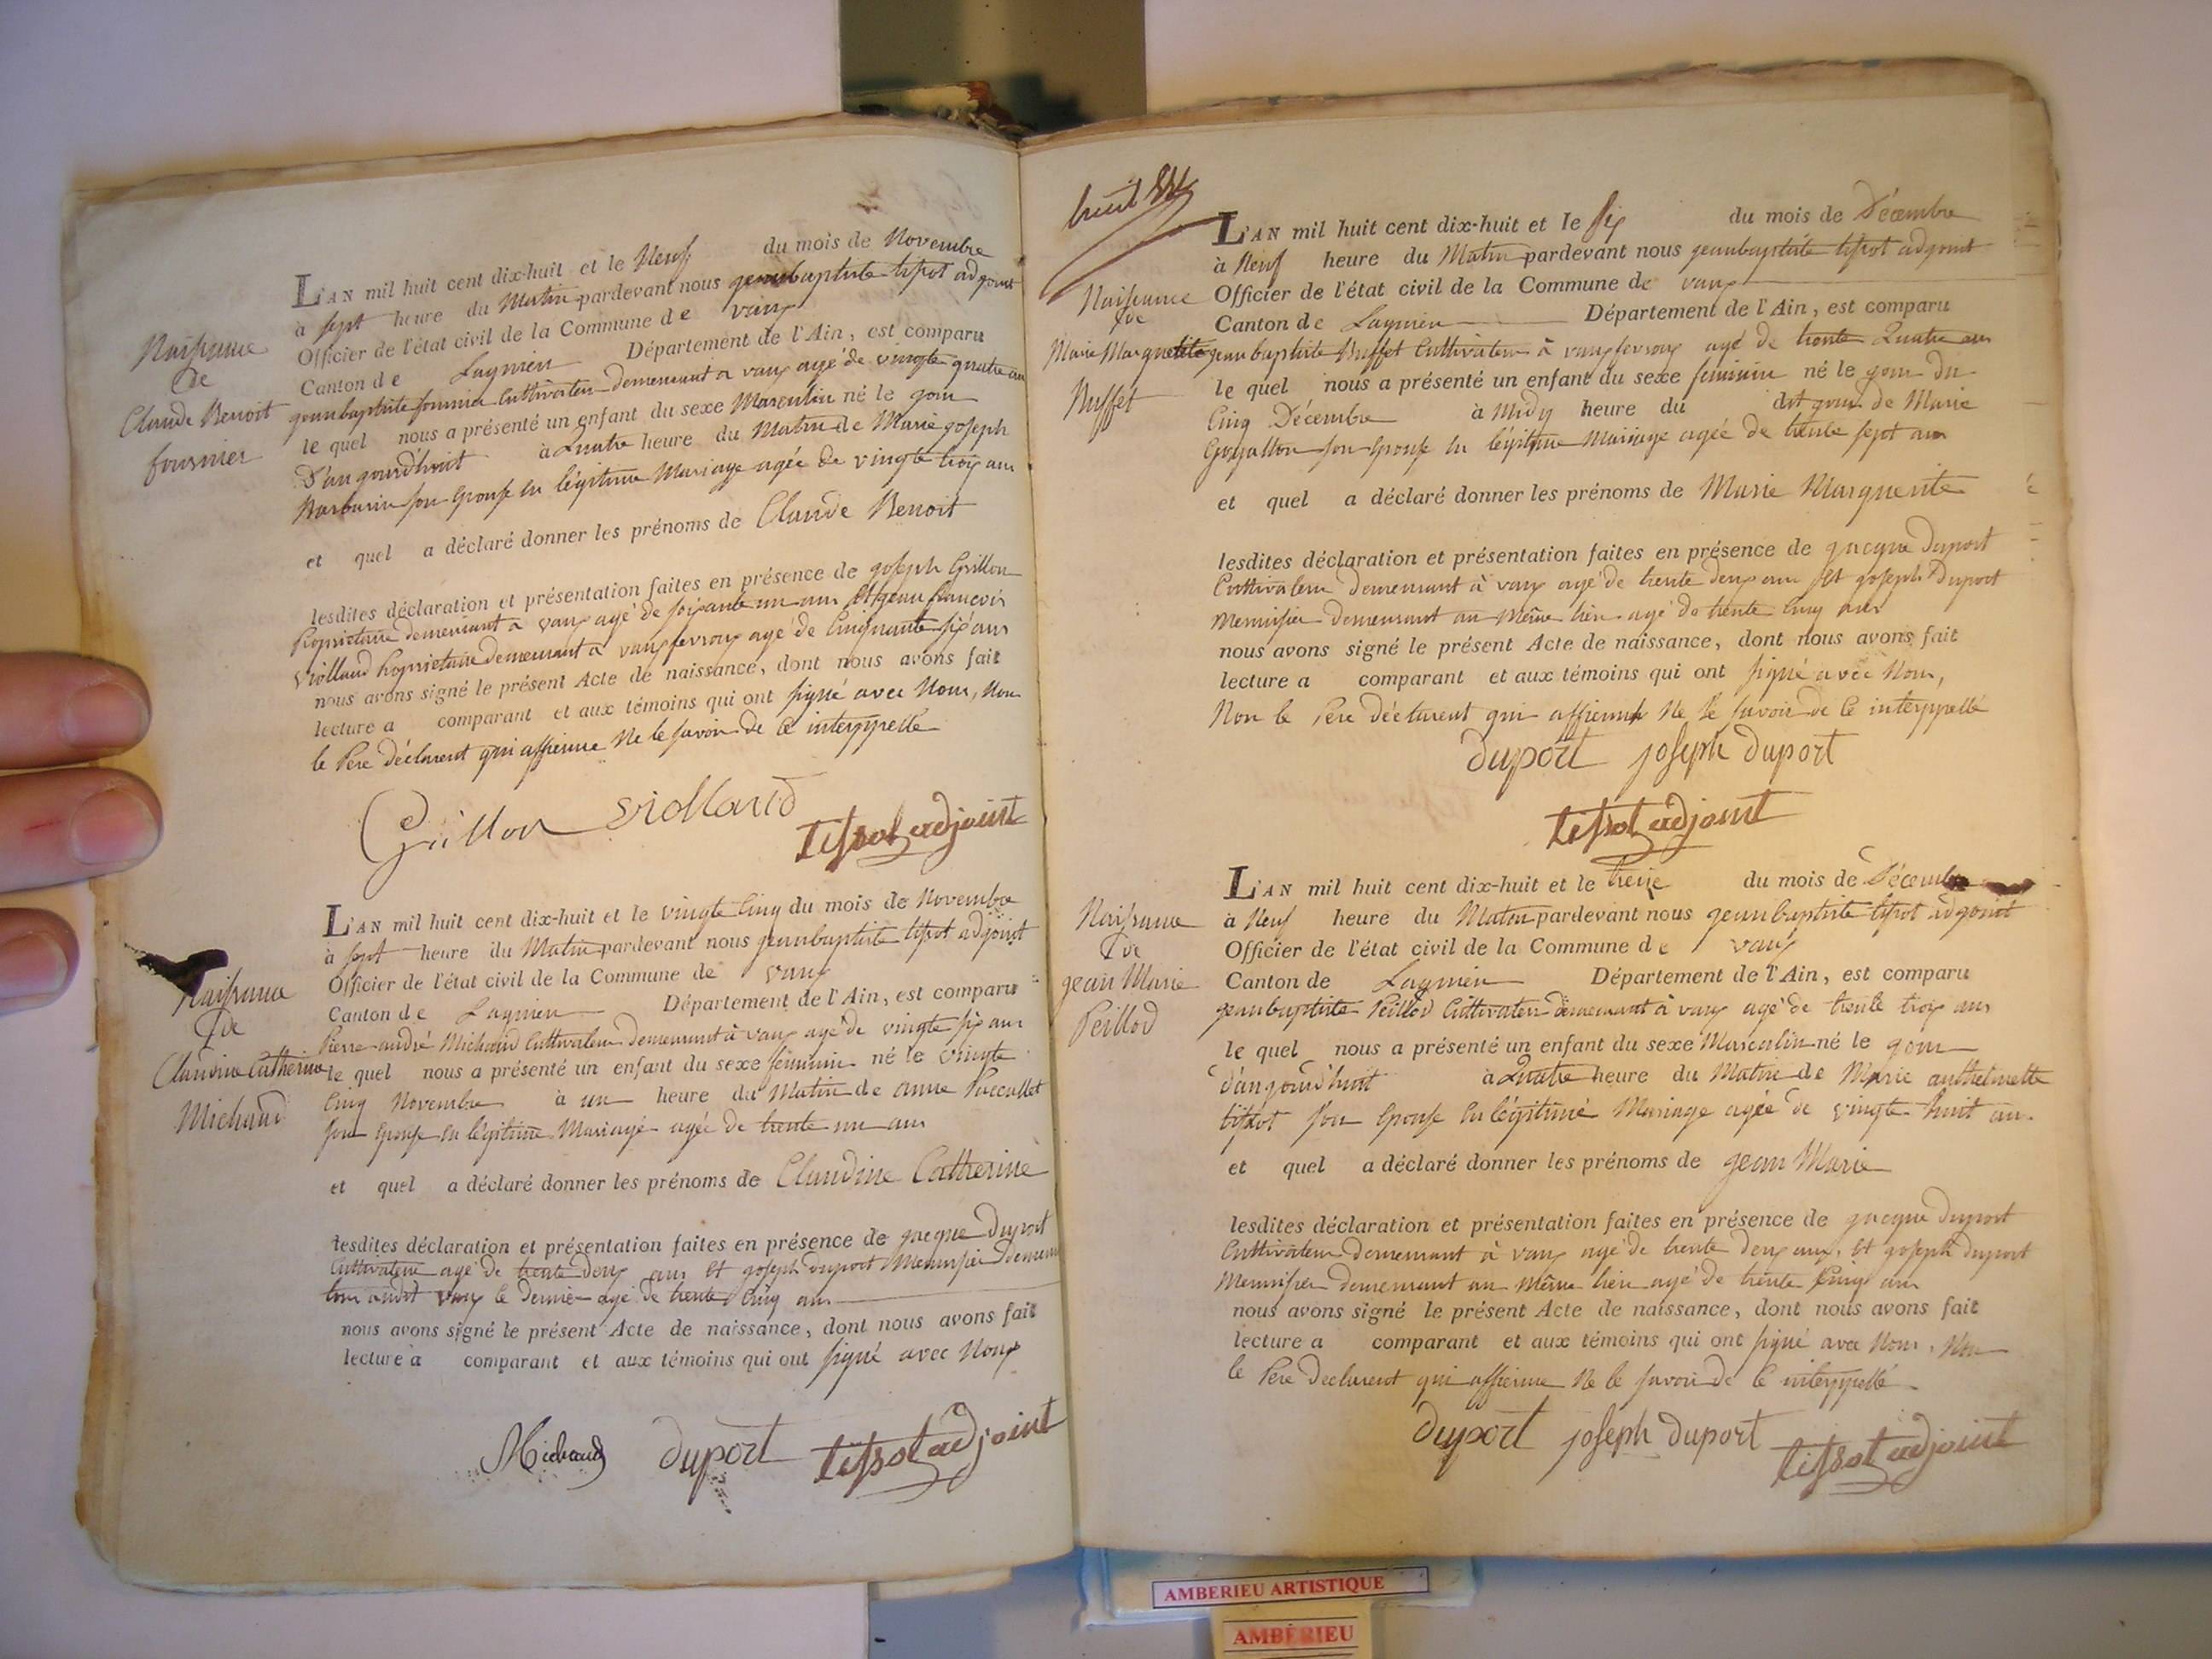 Naissance
de
Claude Benoit
fournier
L'AN mil huit cent dix-huit et le Neuf du mois de Novembre
à sept heure du Matin pardevant nous jeanbaptiste tissot adjoint
Officier de l'état civil de la Commune de vaux
Canton de Lagnieu Département de l'Ain, est comparu
jeanbaptiste fournier Cultivateur demeurant a vaux agé de vingte quatre an
le quel nous a présenté un enfant du sexe Masculin né le jour
D'au jourd'huit à Quatre heure du Matin de Marie joseph
Barbarin son Epouse en légitime Mariage agée de vingte trois ans
et quel a déclaré donner les prénoms de Claude Benoit
lesdites déclaration et présentation faites en présence de joseph Grillon
Proprietaire demeurant a vaux agé de soixante un ans Et jean francois
Violland Proprietaire demeurant a vauxfevroux agé de Cinquante six ans
nous avons signé le présent Acte de naissance, dont nous avons fait
lecture a comparant et aux témoins qui ont signé avec Nous, Non
le Pere déclarent qui affirme Ne le savoir de ce interppellé
Grillon Violland tissot adjoint
Naissance
de
Claudine Catherine
Michaud
L'AN mil huit cent dix-huit et le vingte Cinq du mois de Novembre
à sept heure du Matin pardevant nous jeanbaptiste tissot adjoint
Officier de l'état civil de la Commune de vaux
Canton de Lagnieu Département de l'Ain, est comparu
Pierre andré Michaud Cultivateur demeurant à vaux agé de vingte six ans
le quel nous a présenté un enfant du sexe féminin né le vingte
Cinq Novembre à un heure du Matin de anne
son Epouse en légitime Mariage agée de trente un ans
et quel a déclaré donner les prénoms de Claudine Catherine
lesdites déclaration et présentation faites en présence de jacque Duport
Cultivateur agé de trente deux ans et joseph duport Menuisier
vaux le dernier agé de trente Cinq ans
nous avons signé le présent Acte de naissance, dont nous avons fait
lecture à comparant et aux témoins qui ont signé avec Nous
Michaud duport tissot adjoint
huit
Naissance
de
Marie Marguerite
Buffet
L'AN mil huit cent dix-huit et le six du mois de Décembre
à Neuf heure du Matin pardevant nous jeanbaptiste tissot adjoint
Officier de l'état civil de la Commune de vaux
Canton de Lagnieu Département de l'Ain, est comparu
jean baptiste Buffet Cultivateur à vauxfevroux agé de trente Quatre ans
le quel nous a présenté un enfant du sexe feminin né le jour du
Cinq Décembre à Midy heure du dit jour de Marie
son Epouse en légitime Mariage agée de trente sept ans
et quel a déclaré donner les prénoms de Marie Marguerite
lesdites déclaration et présentation faites en présence de jacque Duport
Cultivateur demeurant à vaux agé de trente deux ans Et joseph Duport
Menuisier demeurant au même lieu agé de trente Cinq ans
nous avons signé le présent Acte de naissance, dont nous avons fait
lecture a comparant et aux témoins qui ont signé avec Nous,
Non le Pere déclarent qui affirme Ne le savoir de ce interppellé
duport joseph duport
tissot adjoint
Naissance
de
jean Marie
Peillod
L'AN mil huit cent dix-huit et le treize du mois de Décembre
à Neuf heure du Matin pardevant nous jeanbaptiste tissot adjoint
Officier de l'état civil de la Commune de vaux
Canton de Lagnieu Département de l'Ain, est comparu
jeanbaptiste Peillod Cultivateur demeurant à vaux agé de trente trois ans
le quel nous a présenté un enfant du sexe Masculin né le jour
d'au jourd'huit à Quatre heure du Matin de Marie anthelmette
tissot son Epouse en légitime Mariage agée de vingte huit an
et quel a déclaré donner les prénoms de jean Marie
lesdites déclaration et présentation faites en présence de jacque duport
Cultivateur demeurant à vaux agé de trente deux ans, Et joseph duport
Menuisier demeurant au même lieu agé de trente Cinq ans
nous avons signé le présent Acte de naissance, dont nous avons fait
lecture a comparant et aux témoins qui ont signé avec Nous, Non
le Pere declarent qui affirme Ne le savoir de ce interppellé
duport joseph duport tissot adjoint
AMBERIEU ARTISTIQUE
AMBÉRIEU